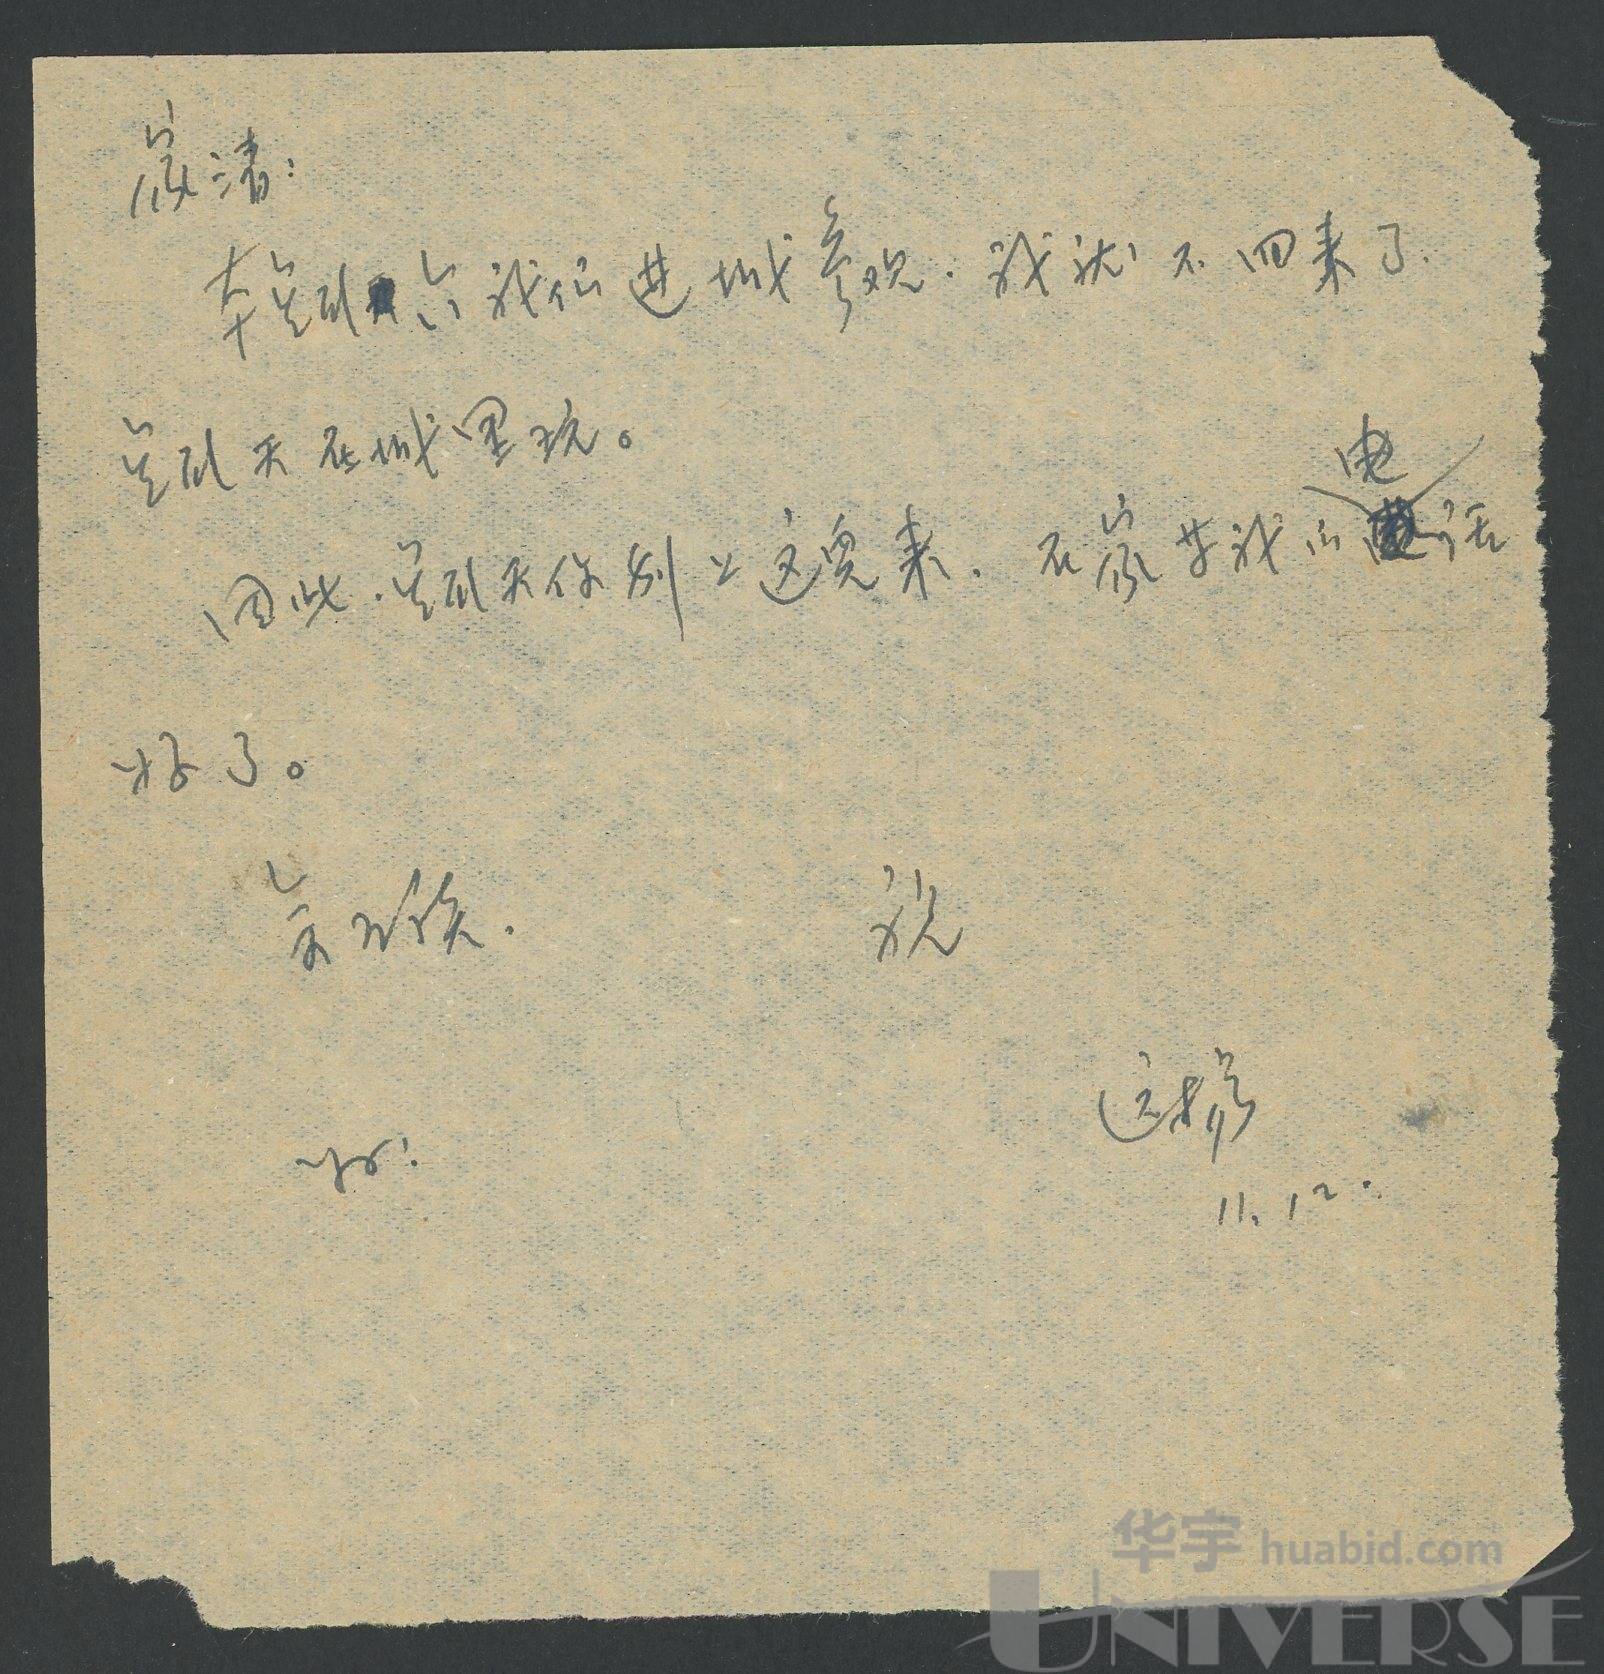 葆清:
本星期六我们进城参观.我就不回来了.
星期天在城里玩。
电
因此.星期天你别上这儿来.在家等我的电话
好了。
祝
好!
11.12.
华宇 huabid.com
UNIVERSE